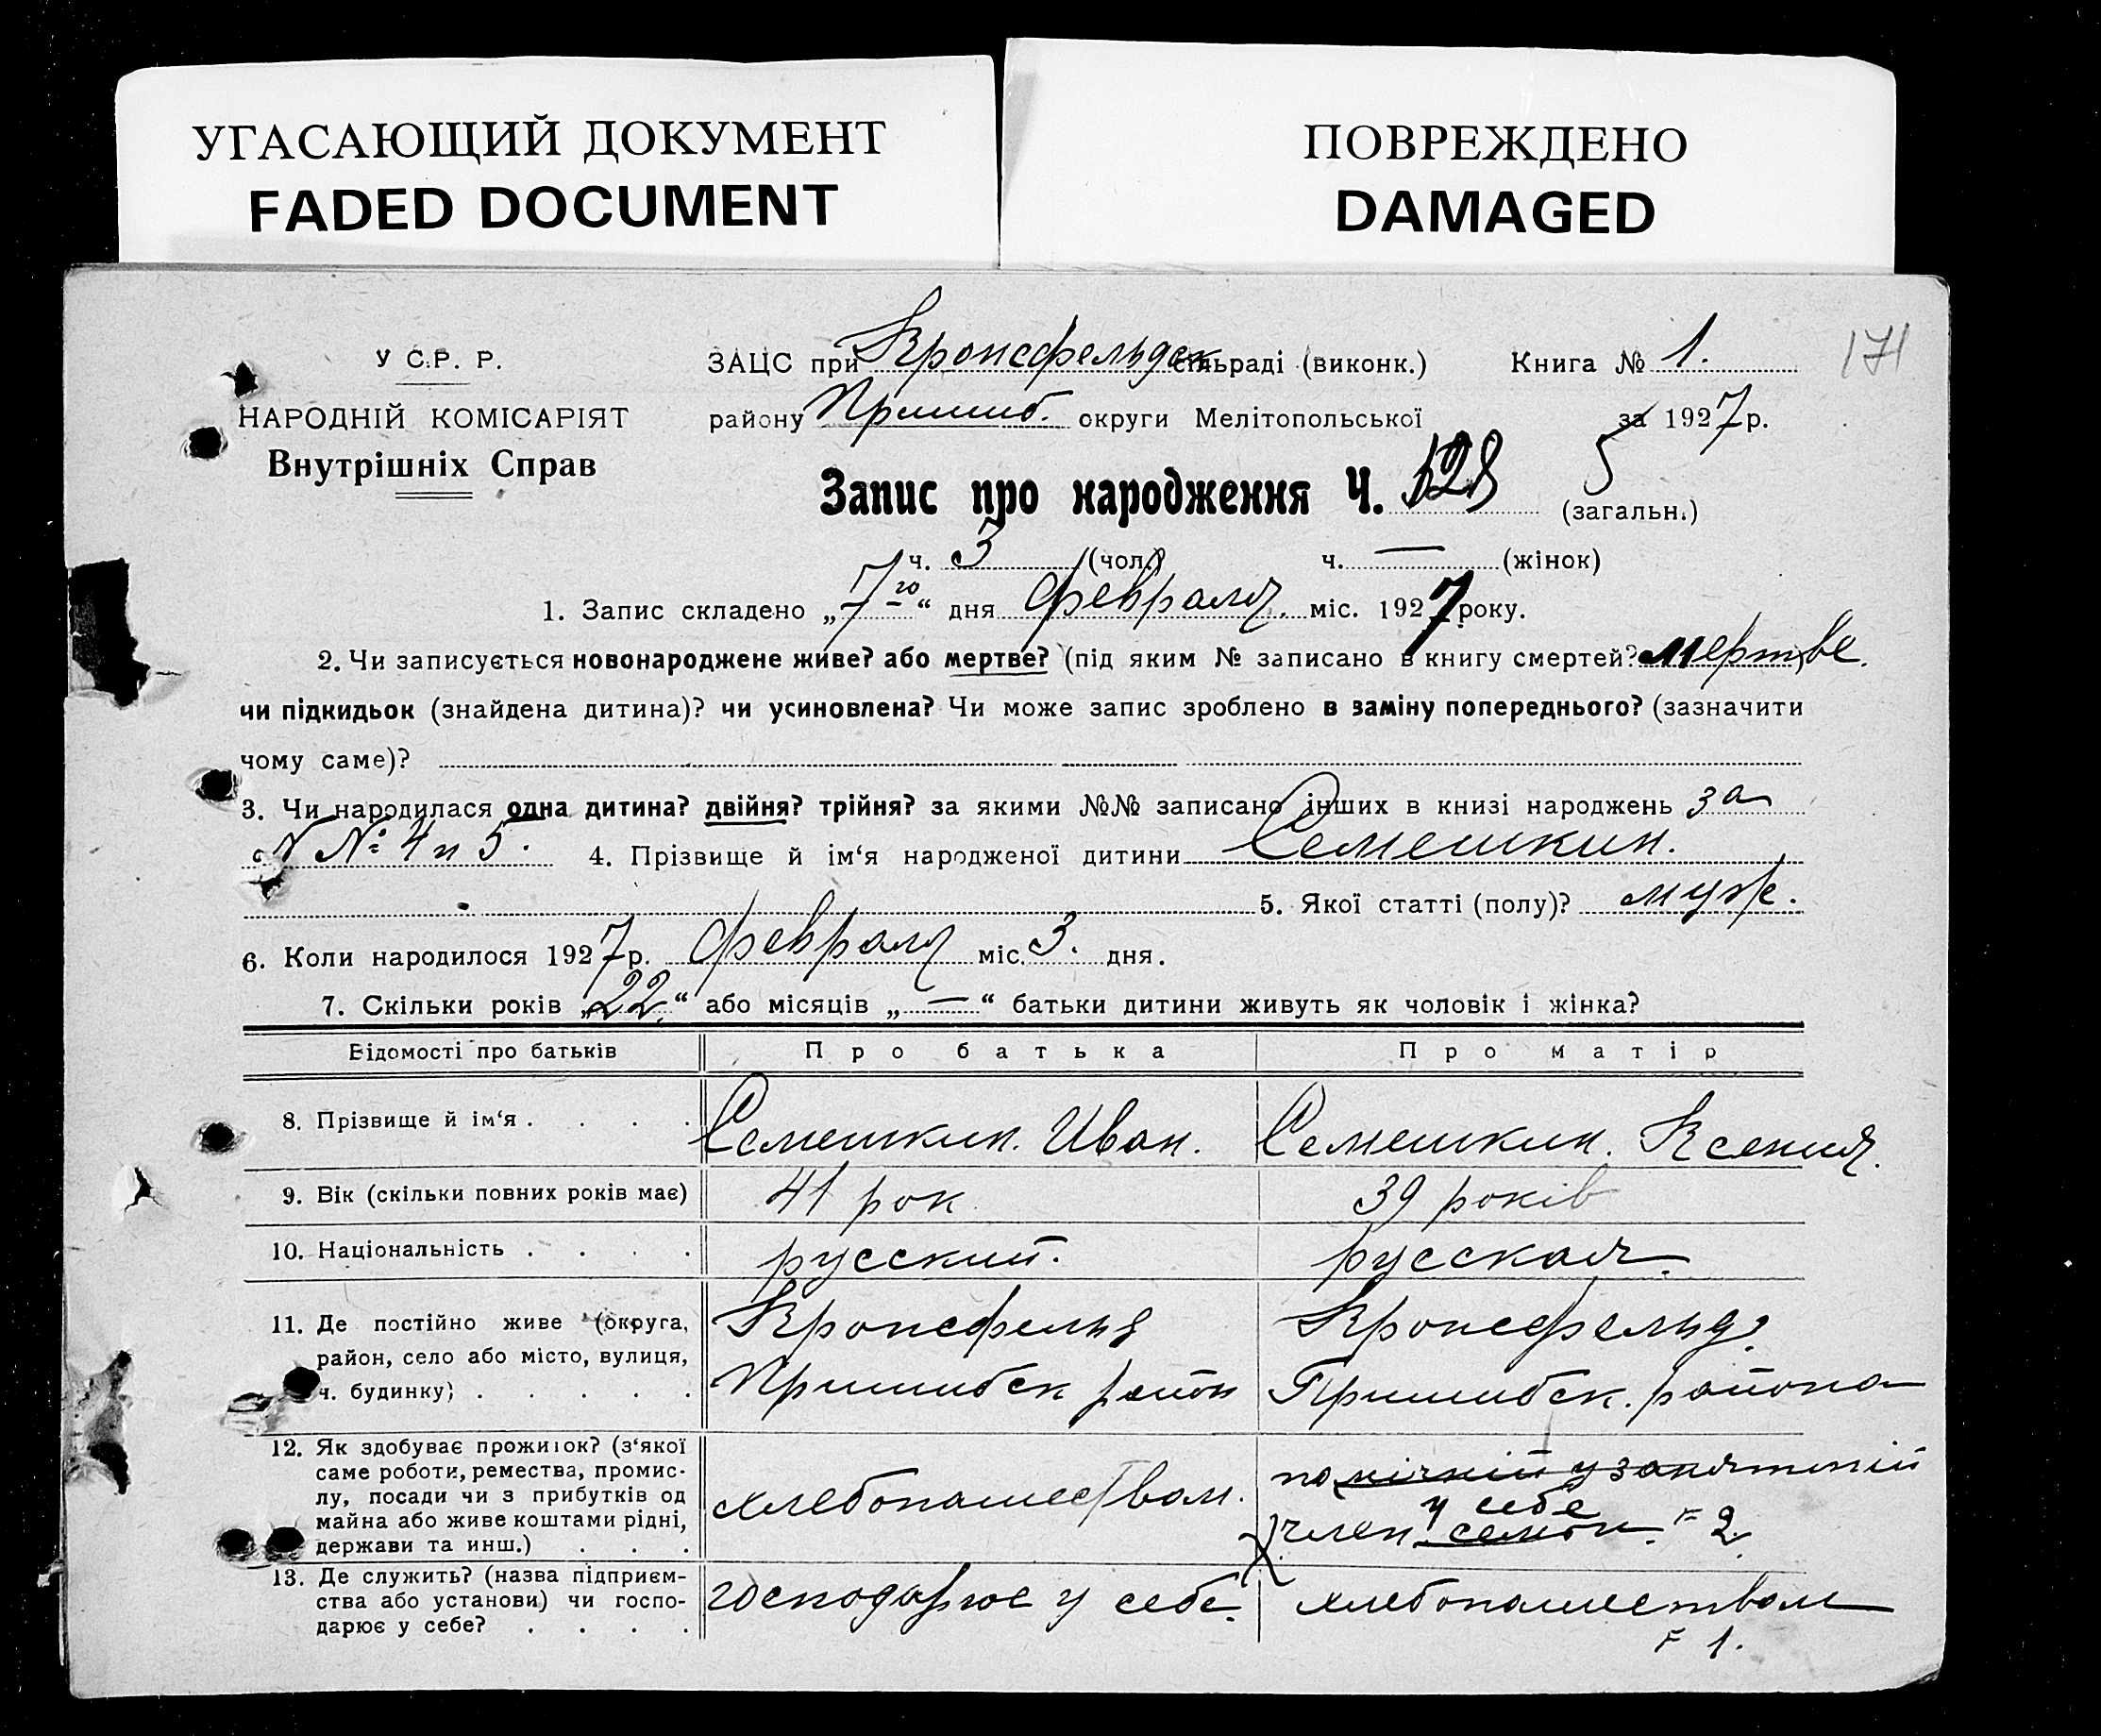 УГАСАЮЩИЙ ДОКУМЕНТ
FADED DOCUMENT
ПОВРЕЖДЕНО
DAMAGED
171
У С.Р. Р.
НАРОДНІЙ КОМІСАРІЯТ
Внутрішніх Справ
ЗАЦС при Кронсфельдск сільраді (виконк.) Книга № 1.
району Пришиб. округи Мелітопольської за 1927 р.
Запис про народження Ч. 5 (загальн.)
ч. 3 (чол.) ч. — (жінок)
1. Запис складено „7го“ дня февраля міс. 1927 року.
2. Чи записується новонароджене живе? або мертве? (під яким № записано в книгу смертей? мертве.
чи підкидьок (знайдена дитина)? чи усиновлена? Чи може запис зроблено в заміну попереднього? (зазначити
чому саме)?
3. Чи народилася одна дитина? двійня? трійня? за якими №№ записано інших в книзі народжень за
N№ 4 и 5. 4. Прізвище й ім‘я народженої дитини Семешкин.
5. Якої статті (полу)? муж.
6. Коли народилося 1927 р. февраля міс. 3. дня.
7. Скільки років „22“ або місяців „—“ батьки дитини живуть як чоловік і жінка?
Відомості про батьків Про батька Про матір
8. Прізвище й ім‘я . . . . Семешкин. Иван. Семешкин. Ксения.
9. Вік (скільки повних років має) 41 рок 39 років
10. Національність . . . . русский. русская.
11. Де постійно живе (округа, Кронсфельд Кронсфельд
район, село або місто, вулиця,
ч. будинку) . . . . . Пришибск район Пришибск. района
12. Як здобуває прожиток? (з‘якої
саме роботи, ремества, промис-
лу, посади чи з прибутків од хлебопашеством.
у себе
майна або живе коштами рідні, член семьи. = 2.
держави та инш.) . . .
13. Де служить? (назва підприєм-
ства або установи) чи госпо- господарює у себе. хлебопашеством
дарює у себе? . . . . = 1.